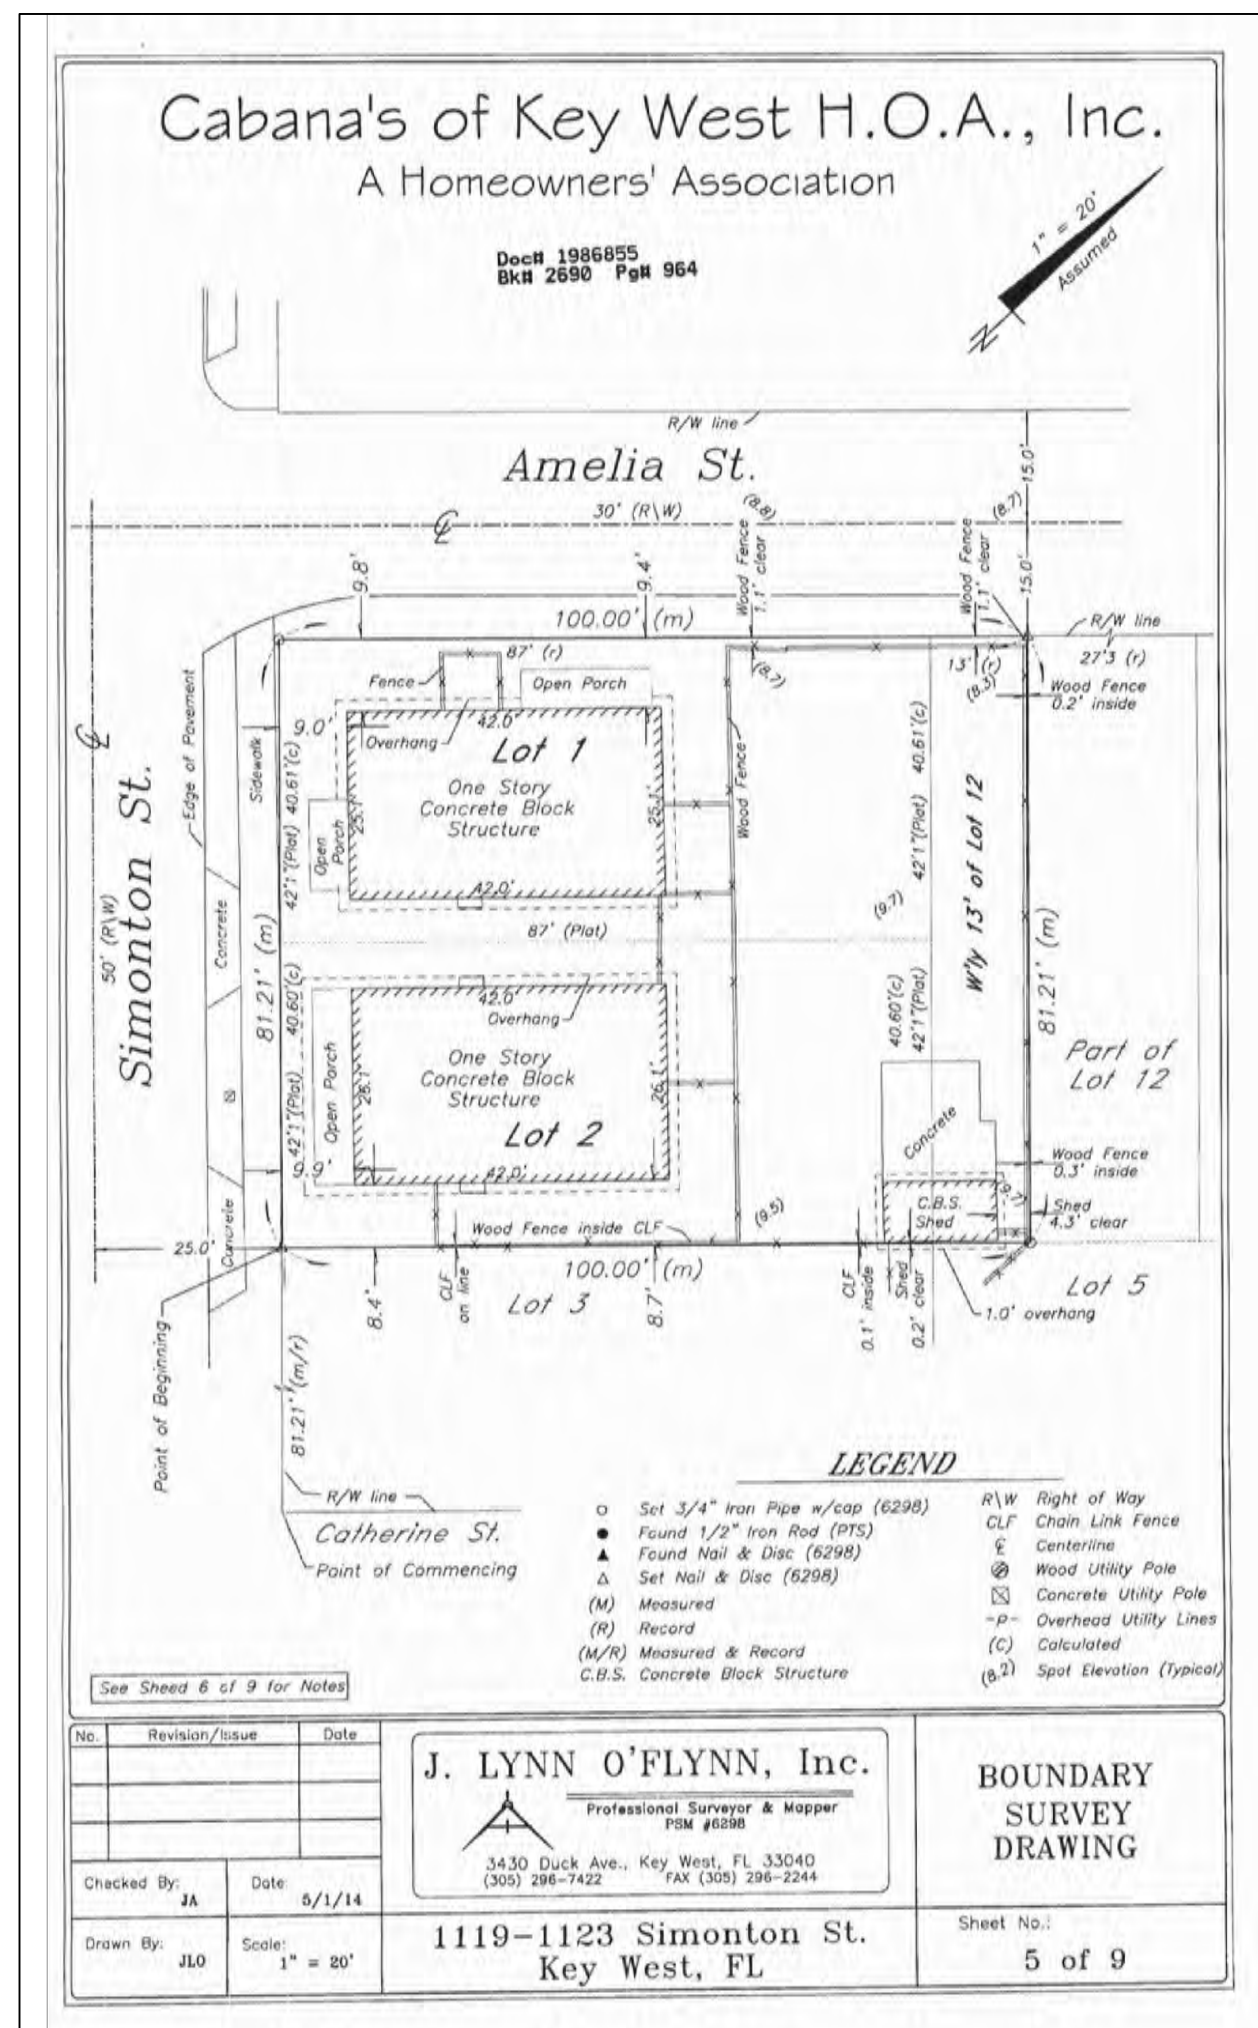 Cabana's of Key West H.O.A., Inc.
A Homeowners' Association
Doc# 1986855
Bk# 2690 Pg# 964
1" = 20'
Assumed
N
R/W line
Amelia St.
30' (R\W)
15.0'
15.0'
(8.8)
(8.7)
Wood Fence
1.1' clear
Wood Fence
1.1' clear
9.8'
9.4'
100.00' (m)
R/W line
27'3 (r)
87' (r)
13' (r)
(8.7)
(8.3)
Wood Fence
0.2' inside
Fence
Open Porch
42.0'
9.0'
Overhang
Lot 1
One Story
Concrete Block
Structure
25.1'
25.1'
Open
Porch
42.0'
Sidewalk
Edge of Pavement
Simonton St.
50' (R\W)
Concrete
81.21' (m)
42'1"(Plat) 40.61'(c)
42'1"(Plat) 40.60'(c)
Wood Fence
42'1"(Plat) 40.61'(c)
W'ly 13' of Lot 12
(9.7)
87' (Plat)
40.60'(c)
42'1"(Plat)
81.21' (m)
Part of
Lot 12
42.0'
Overhang
One Story
Concrete Block
Structure
26.1'
26.1'
Open Porch
Lot 2
9.9'
42.0'
Concrete
Wood Fence
0.3' inside
C.B.S.
Shed
(9.7)
Shed
4.3' clear
(9.5)
Wood Fence inside CLF
Concrete
25.0'
100.00' (m)
8.4'
CLF
on line
Lot 3
8.7'
CLF
0.1' inside
Shed
0.2' clear
Lot 5
1.0' overhang
Point of Beginning
81.21' (m/r)
R/W line
Catherine St.
Point of Commencing
LEGEND
Set 3/4" Iron Pipe w/cap (6298)
Found 1/2" Iron Rod (PTS)
Found Nail & Disc (6298)
Set Nail & Disc (6298)
(M) Measured
(R) Record
(M/R) Measured & Record
C.B.S. Concrete Block Structure
R\W Right of Way
CLF Chain Link Fence
℄ Centerline
Wood Utility Pole
Concrete Utility Pole
-P- Overhead Utility Lines
(C) Calculated
(8.2) Spot Elevation (Typical)
See Sheed 6 of 9 for Notes
No. Revision/Issue Date
Checked By:
JA
Date:
5/1/14
Drawn By:
JLO
Scale:
1" = 20'
J. LYNN O'FLYNN, Inc.
Professional Surveyor & Mapper
PSM #6298
3430 Duck Ave., Key West, FL 33040
(305) 296-7422 FAX (305) 296-2244
1119-1123 Simonton St.
Key West, FL
BOUNDARY
SURVEY
DRAWING
Sheet No.:
5 of 9